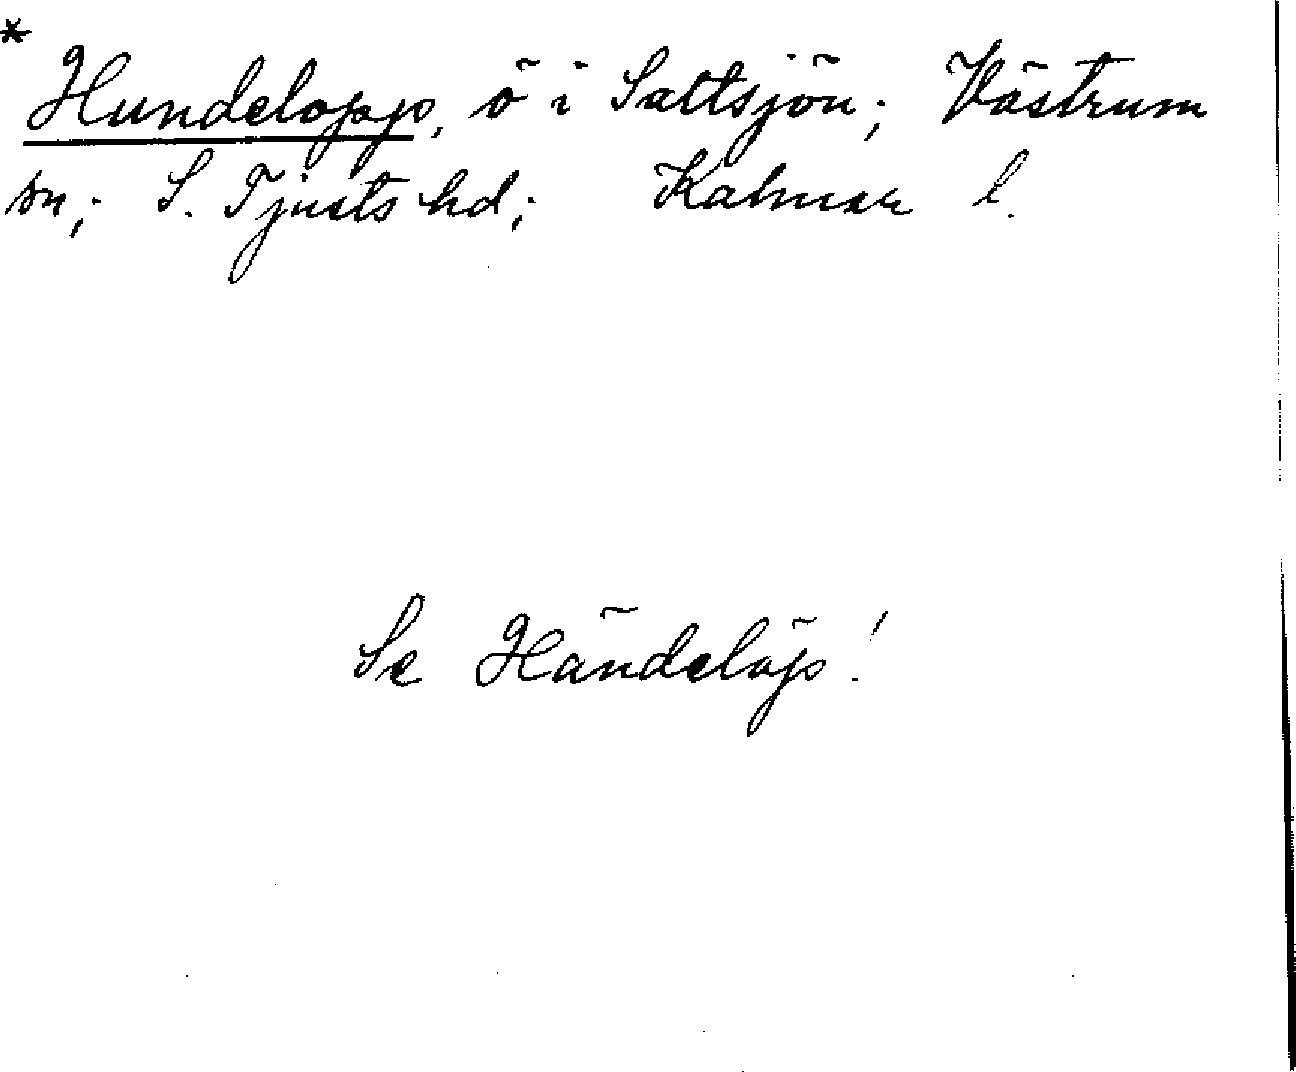 *
Hundelopp, ö i Saltsjön; Västrum
sn; S. Tjusts hd; Kalmar l.
Se Händelöp!